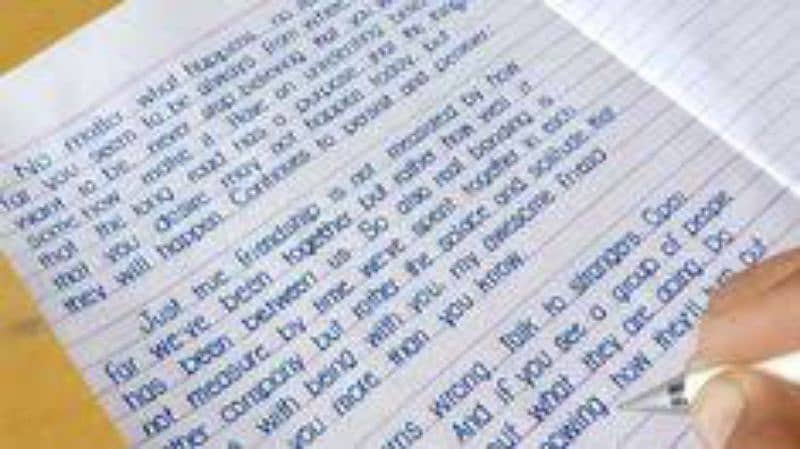 No matter what happens, no
far you seem to be always from where you
want to be, never stop believing that you will
some how make it. Have an unrelenting belief
that the long road has a purpose, that the things
that you desire may not happen today, but
they will happen. Continues to persist and persever.
Just true friendship is not measured by how
far we've been together but rather how well it
has been between us. So also real bonding is
not measure by time we've spent together in each
other company but rather the solace and solitude that
with being with you, my awesome friend
you more than you know.
wrong. Talk to strangers. Open
And if you see a group of people
out what they are doing. Do
how they'll out